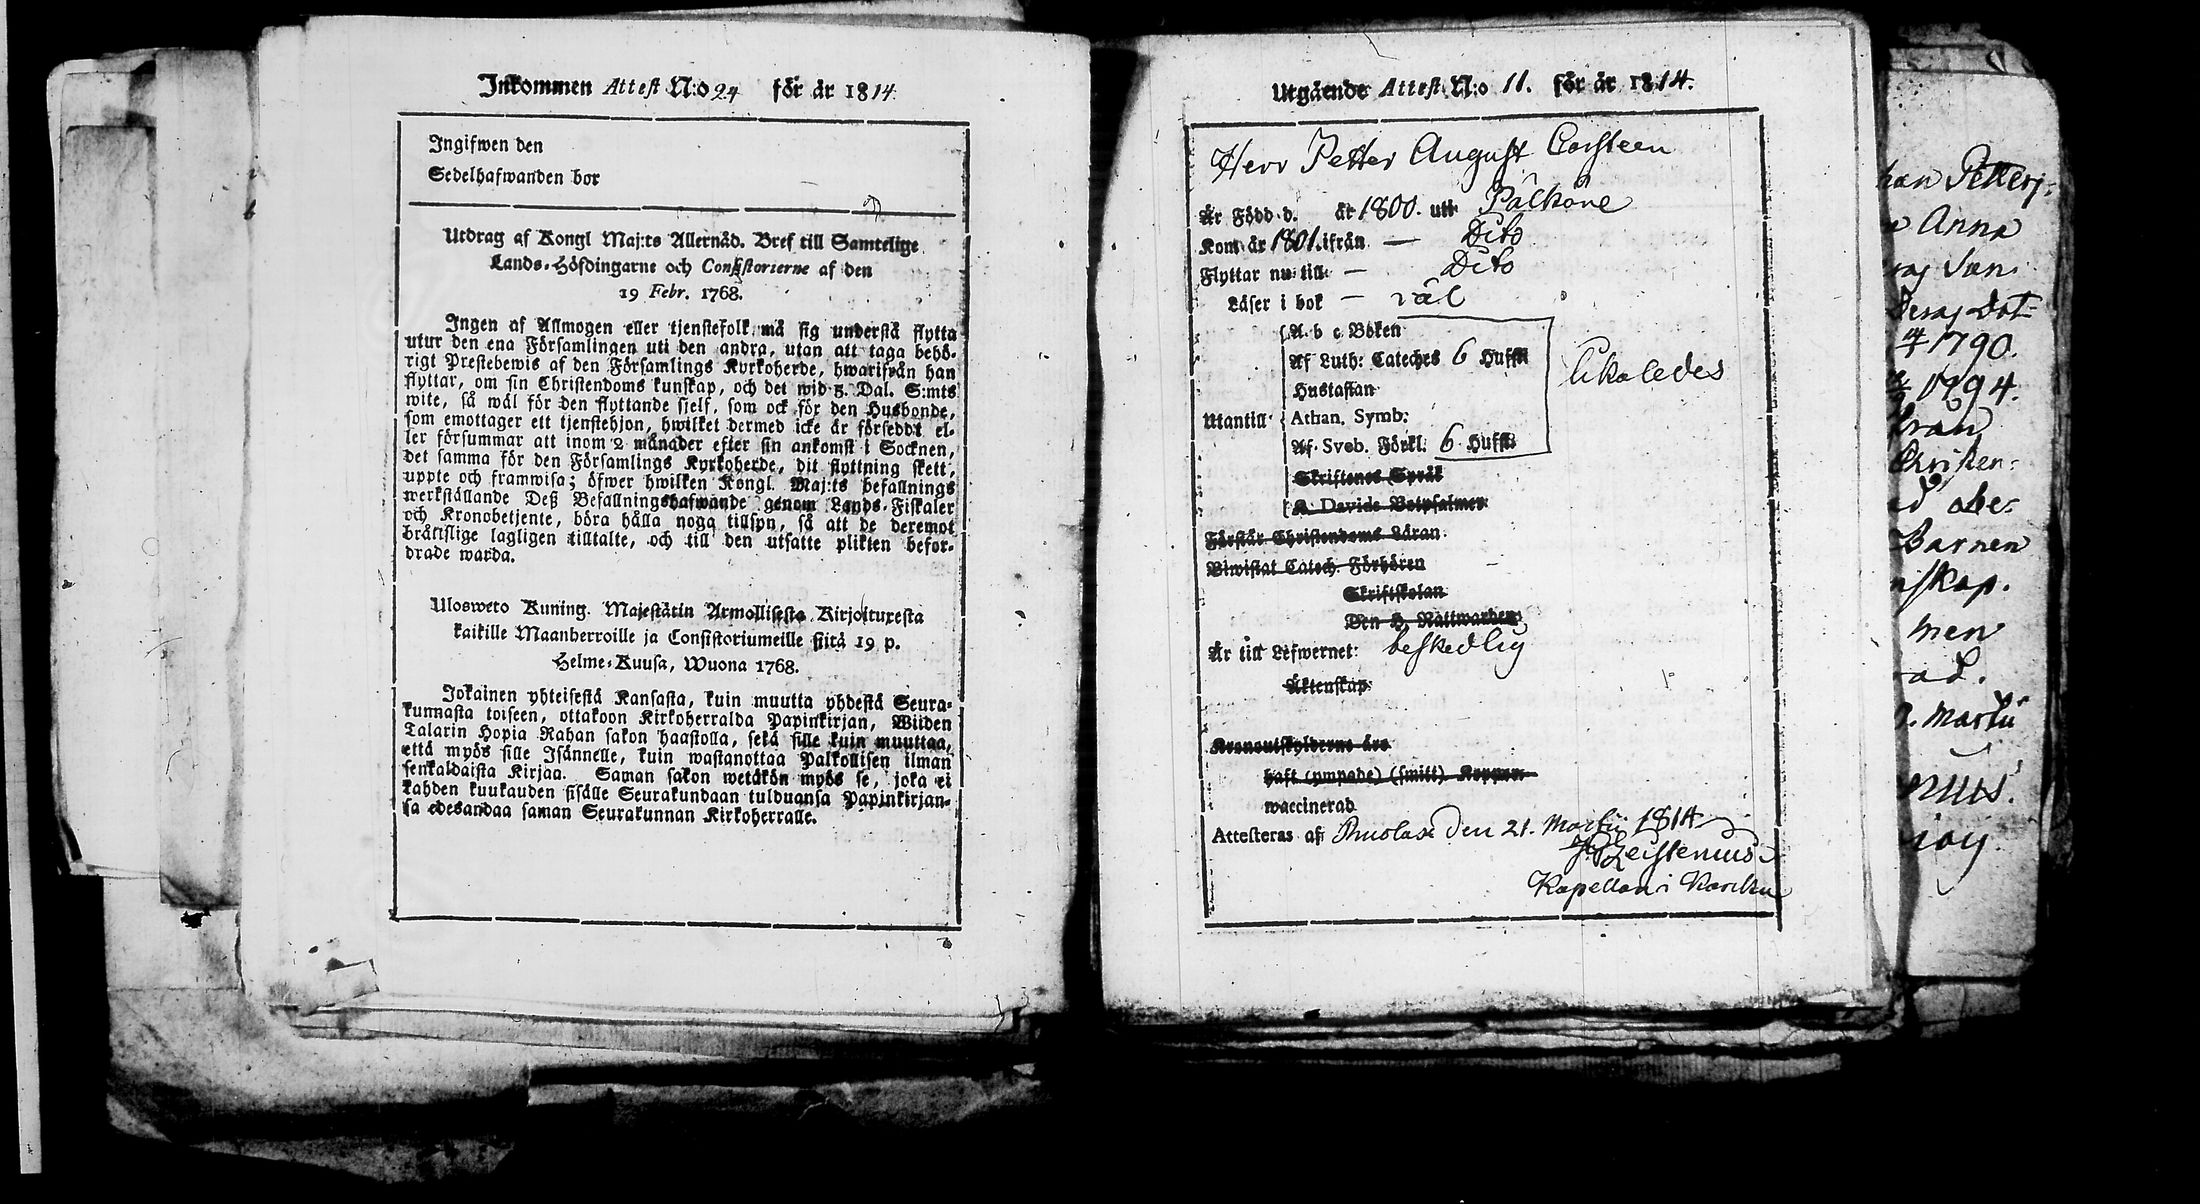 Inkommen Attest N:o 24 för år 1814.
Ingifwen den
Sedelhafwanden bor
Utdrag af Kongl Maj:ts Allernåd. Bref till Samtelige
Lands-Höfdingarne och Consistorierne af den
19 Febr. 1768.
Ingen af Allmogen eller tjenstefolk må sig understå flytta
utur den ena Församlingen uti den andra, utan att taga behö-
rigt Prestebewis af den Församlings Kyrkoherde, hwarifrån han
flyttar, om sin Christendoms kunskap, och det wid 5. Dal. S:mts
wite, så wäl för den flyttande sjelf, som ock för den Husbonde,
som emottager ett tjenstehjon, hwilket dermed icke är förseddt el-
ler försummar att inom 2 månader efter sin ankomst i Socknen,
det samma för den Församlings Kyrkoherde, dit flyttning skett,
uppte och framwisa; öfwer hwilken Kongl. Maj:ts befallnings
werkställande Deß Befallningshafwande genom Lands-Fiskaler
och Kronobetjente, böra hålla noga tillsyn, så att de deremot
bråttslige lagligen tilltalte, och till den utsatte plikten befor-
drade warda.
Ulosweto Kuning. Majestätin Armollisesta Kirjoituxesta
kaikille Maanherroille ja Consistoriumeille siitä 19 p.
Helme-Kuusa, Wuona 1768.
Jokainen yhteisestä Kansasta, kuin muutta yhdestä Seura-
kunnasta toiseen, ottakoon Kirkoherralda Papinkirjan, Wiiden
Talarin Hopia Rahan sakon haastolla, sekä sille kuin muuttaa,
että myös sille Isännelle, kuin wastanottaa Palkollisen ilman
senkaldaista Kirjaa. Saman sakon wetäkön myös se, joka ei
kahden kuukauden sisälle Seurakundaan tulduansa Papinkirjan-
sa edesandaa saman Seurakunnan Kirkoherralle.
Utgående Attest N:o 11. för år 1814.
Herr Petter August Carsteen
Är Född d. år 1800. uti Pälkäne
Kom år 1801. ifrån — Dito
Flyttar nu till — Dito
Läser i bok — väl
A. b c Boken
Af Luth: Cateches 6 Hufst.
Hustaflan
likaledes
Utantill Athan. Symb:
Af Sveb. Förkl. 6 Hufst.
Skriftenes Språk
K. Davids Botpsalmer
Förstår Christendoms Läran
Biwistat Catech. Förhören
Skriftskolan
Den H. Nattwarden
Är till Lefwernet: beskedlig
Äktenskap
Kronoutskylderne äro
haft (ympade) (smitt) Koppor
waccinerad
Attesteras af den 21. Martii 1814
Kapellan i Karcku
han Petters-
Anna
Son
Dot-
1790.
1794.
från
Christen-
abe-
Barnen
nskap.
men
ad.
Martii